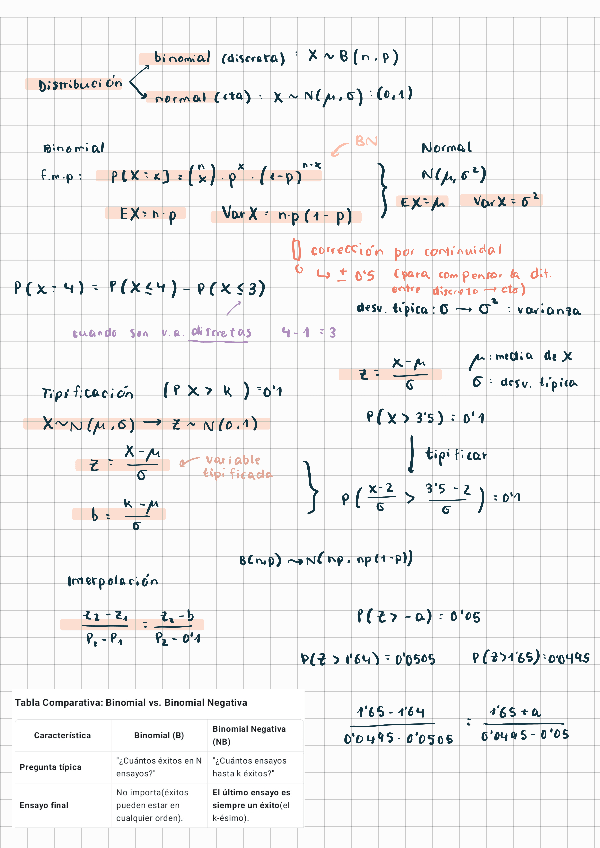 binomial (discreta) : X ~ B(n,p)
Distribución
normal (cta) : X ~ N(μ, σ) : (0,1)
Binomial
BN
Normal
f.m.p: P[X=x] = (n x) · p^x · (1-p)^n-x
N(μ, σ²)
EX = n·p   Var X = n·p (1-p)
EX = μ   Var X = σ²
corrección por continuidad
↳ ± 0'5 (para compensar la dif.
entre discreto → cto)
P(X=4) = P(X≤4) - P(X≤3)
desv. típica: σ → σ² : varianza
cuando son v.a. discretas   4-1=3
z = (X-μ)/σ
μ: media de X
σ: desv. típica
Tipificación (P X > k) = 0'1
X~N(μ, σ) → Z ~ N(0,1)
P(X > 3'5) = 0'1
z = (X-μ)/σ
variable
tipificada
tipificar
b = (k-μ)/σ
P( (x-2)/σ > (3'5-2)/σ ) = 0'1
B(n,p) → N(np, np(1-p))
Interpolación
(z₂-z₁)/(P₂-P₁) = (z₂-b)/(P₂-0'1)
P(Z > -a) = 0'05
P(Z > 1'64) = 0'0505   P(Z>1'65) = 0'0495
(1'65-1'64)/(0'0495-0'0505) = (1'65+a)/(0'0495-0'05)
Tabla Comparativa: Binomial vs. Binomial Negativa
Característica   Binomial (B)   Binomial Negativa (NB)
Pregunta típica   "¿Cuántos éxitos en N ensayos?"   "¿Cuántos ensayos hasta k éxitos?"
Ensayo final   No importa(éxitos pueden estar en cualquier orden).   El último ensayo es siempre un éxito(el k-ésimo).